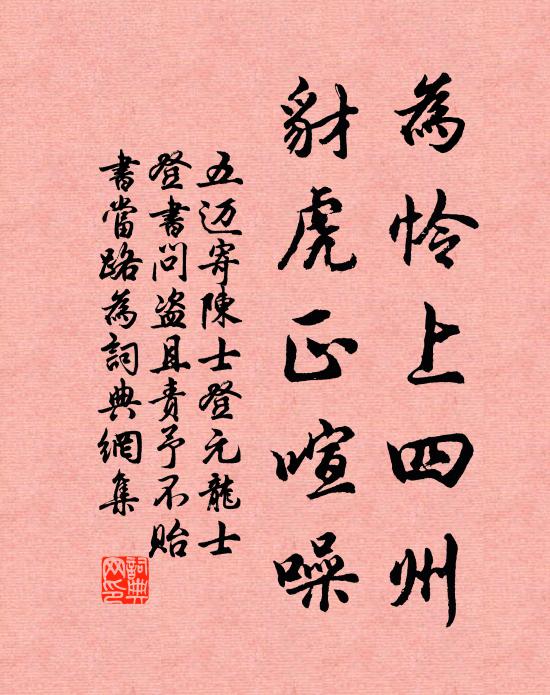 為怜上四州
豺虎正喧噪
五迈寄陳士登元龍士
登書問盗且責予不貽
書當路為詞典網集
詞典网印